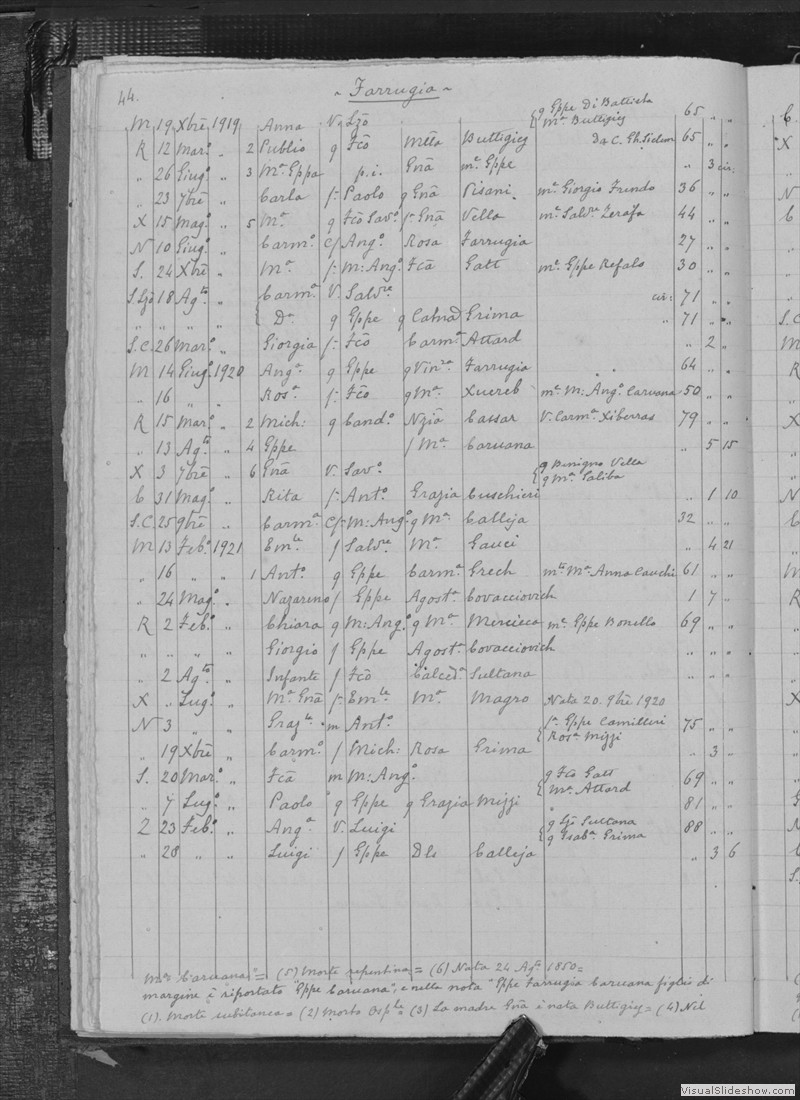 44. ~ Farrugia ~
M 19 Xbrē 1919 Anna V. Ljō { q Eppe Di Battista 65 „ „
Mª Buttigieg
R 12 Mar.º „ 2 Publio q Fcō Mtta Buttigieg Da C. Gh. Siclun 65 „ „
„ 26 Giug.º „ 3 Mª Eppa p.i. Gnā m.ª Eppe „ 3 cir:
„ 23 7brē „ Carla f- Paolo q Gnā Pisani mª Giorgio Frendo 36 „ „
X 15 Mag.º „ 5 Mª q Fcō Sav.º f- Gnā Vella mª Salv.re Zerafa 44 „ „
N 10 Giug.º „ Carm.º c/ Ang.º Rosa Farrugia 27 „ „
S. 24 Xbrē „ Mª f- M: Ang.º Fcā Gatt mª Eppe Refalo 30 „ „
S. Ljō 18 Ag.to „ { Carm.ª V. Salv.re cir: 71 „ „
„ „ „ „ Dª q Eppe q Catnā Grima „ 71 „ „
S.C. 26 Mar.º „ Giorgia f- Fcō Carm.ª Attard „ 2 „
M 14 Giug.º 1920 Ang.ª q Eppe q Vin.za Farrugia 64 „ „
„ 16 „ „ Ros.ª f- Fcō q Mª Xuereb mª M: Ang.º Caruana 50 „ „
R 15 Mar.º „ 2 Mich: q Cand.º Nzia Cassar V. Carm.ª Xiberras 79 „ „
„ 13 Ag.to „ 4 Eppe f Mª Caruana „ 5 15
X 3 7brē „ 6 Gnā V. Sav.º { q Benigno Vella
q Mª Saliba
C 31 Mag.º „ Rita f- Ant.º Grazia Cuschieri „ 1 10
S.C. 25 9brē „ Carm.ª c/- M: Ang.º q Mª Calleja 32 „ „
M 13 Feb.º 1921 Em.le f Salv.re Mª Gauci „ 4 21
„ 16 „ „ 1 Ant.º q Eppe Carm.ª Grech m.to Mª Anna Cauchi 61 „ „
„ 24 Mag.º „ Nazareno f Eppe Agost.ª Covacciovich 1 7 „
R 2 Feb.º „ Chiara q M: Ang.º q Mª Mercieca mª Eppe Bonello 69 „ „
„ „ „ „ Giorgio f Eppe Agost.ª Covacciovich „ „ „
„ 2 Ag.to „ Infante f Fcō Calced.ª Sultana „ „ „
X „ Lug.º „ Mª Gnā f- Em.le Mª Magro Nata 20. 9brē 1920
N 3 „ „ Graz.la m Ant.º { f- Eppe Camilleri 75 „ „
Ros.ª Mizzi
„ 19 Xbrē „ Carm.º f Mich: Rosa Grima „ 3 „
S. 20 Mar.º „ Fcā m M: Ang.º { q Fcō Gatt 69 „ „
Mª Attard
„ 7 Lug.º „ Paolo q Eppe q Grazia Mizzi 81 „ „
Z 23 Feb.º „ Ang.ª V. Luigi { q Ljō Sultana 88 „ „
q Isab.ª Grima
„ 28 „ „ Luigi f Eppe Dls Calleja „ 3 6
Mª Caruana" = (5) Morte repentina = (6) Nata 24 Ag.to 1850 =
margine è riportato "Eppe Caruana", e nella nota "Eppe Farrugia Caruana figlio di
(1). Morte subitanea = (2) Morto Osp.le = (3) La madre Gnā è nata Buttigieg = (4) Nel
VisualSlideshow.com